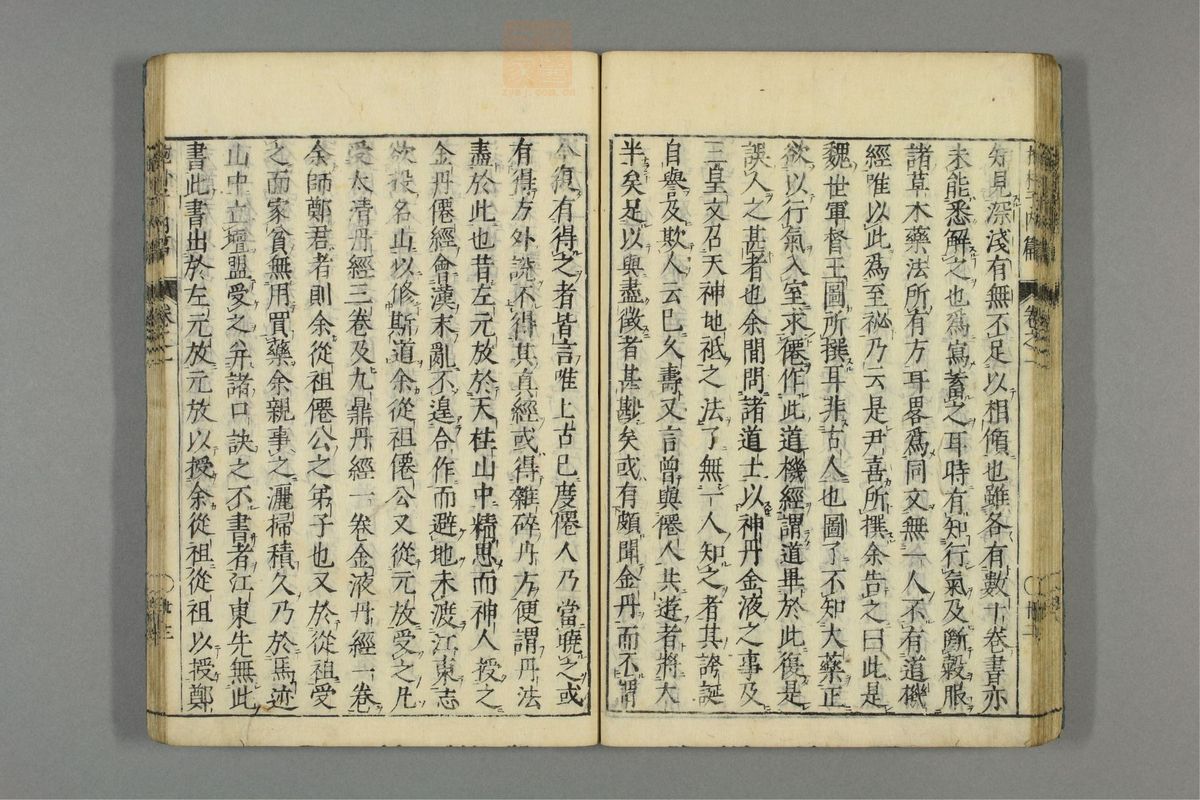 先見深淺有無不足以相傾也雖各有數十卷書亦
未能悉解之也爲寫蓄之耳時有知行氣及斷穀服
諸草木藥法所有方耳畧爲同文無一人不有道機
經唯以此爲至祕乃云是尹喜所撰余告之曰此是
魏世軍督王圖所撰耳非古人也圖了不知大藥正
欲以行氣入室求僊作此道機經謂道畢於此復是
誤人之甚者也余間問諸道士以神丹金液之事及
三皇文召天神地祇之法了無一人知之者其誇誕
自譽及欺人云巳久壽又言曾與僊人共遊者將太
半矣足以與盡微者甚尠矣或有頗聞金丹而不謂
今復有得之者皆言唯上古巳度僊人乃當曉之或
有得方外說不得其真經或得雜碎丹方便謂丹法
盡於此也昔左元放於天柱山中精思而神人授之
金丹僊經會漢末亂不遑合作而避地來渡江東志
欲投名山以修斯道余從祖僊公又從元放受之凢
受太清丹經三卷及九鼎丹經一卷金液丹經一卷
余師鄭君者則余從祖僊公之弟子也又於從祖受
之而家貧無用買藥余親事之灑掃積久乃於馬迹
山中立壇盟受之幷諸口訣之不書者江東先無此
書此書出於左元放元放以授余從祖從祖以授鄭